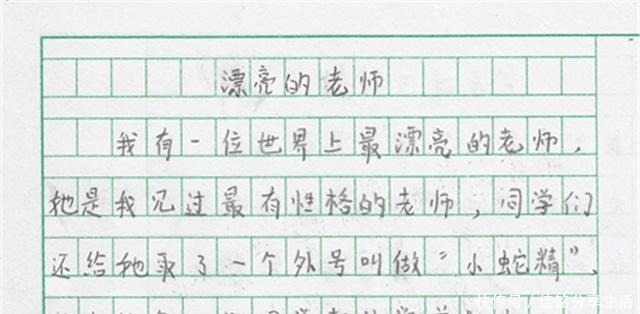 漂亮的老师
我有一位世界上最漂亮的老师，
她是我见过最有性格的老师，同学们
还给她取了一个外号叫做“小蛇精”、
快传号/佳铭分享生活